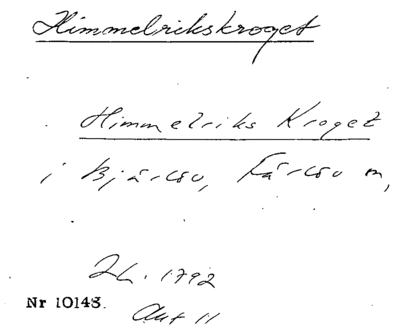 Himmelrikskroget
Himmelriks Kroget
i Bjärsö, Färsö n,
1792
Nr 10148.
Akt 11